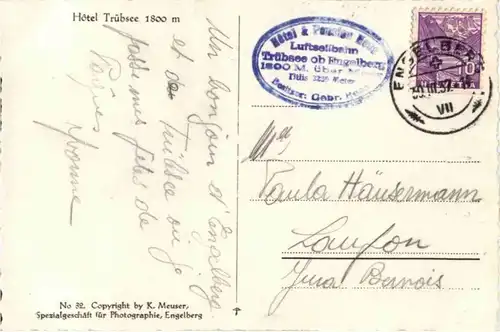 Hôtel Trübsee 1800 m
Un bonjour d'Engelberg
et de Trübsee où je
passe mes fêtes de
Pâques
Yvonne
No 32. Copyright by K. Meuser,
Spezialgeschäft für Photographie, Engelberg
Hôtel & Pension
Luftseilbahn
Trübsee ob Engelberg
1800 M. über
Besitzer: Gebr.
ENGELBERG
III.37
VII
Paula Häusermann
Laufon
Jura Bernois